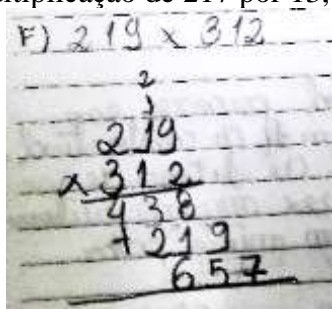 F) 219 x 312
2
1
219
x 312
438
+ 219
657